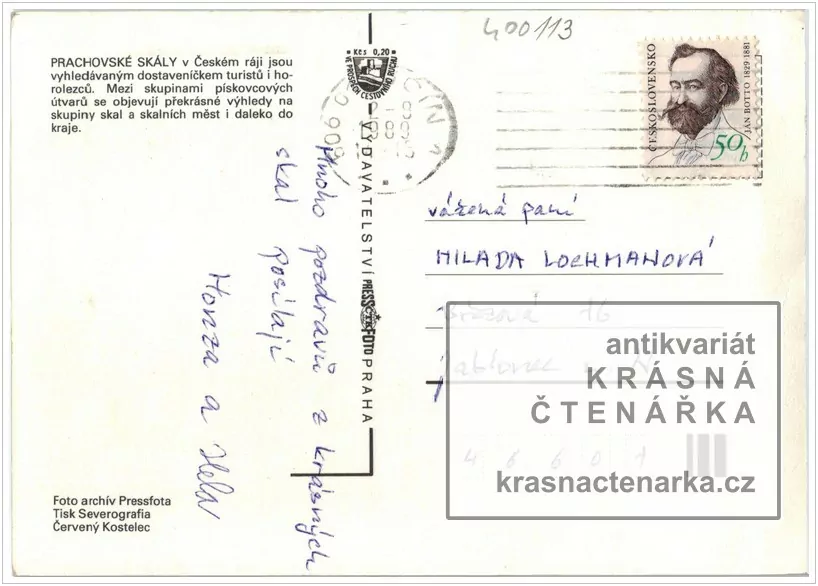 400113
PRACHOVSKÉ SKÁLY v Českém ráji jsou
vyhledávaným dostaveníčkem turistů i ho-
rolezců. Mezi skupinami pískovcových
útvarů se objevují překrásné výhledy na
skupiny skal a skalních měst i daleko do
kraje.
Kčs 0,20
VE PROSPĚCH CESTOVNÍHO RUCHU
JIČÍN 1
ČESKOSLOVENSKO
JÁN BOTTO 1829-1881
50h
VYDAVATELSTVÍ PRESSFOTO PRAHA
Mnoho pozdravů z krásných
skal posílají
Honza a
vážená paní
MILADA LOCHMANOVÁ
Březová 16
Jablonec n. N.
46601
antikvariát
KRÁSNÁ
ČTENÁŘKA
krasnactenarka.cz
Foto archív Pressfota
Tisk Severografia
Červený Kostelec